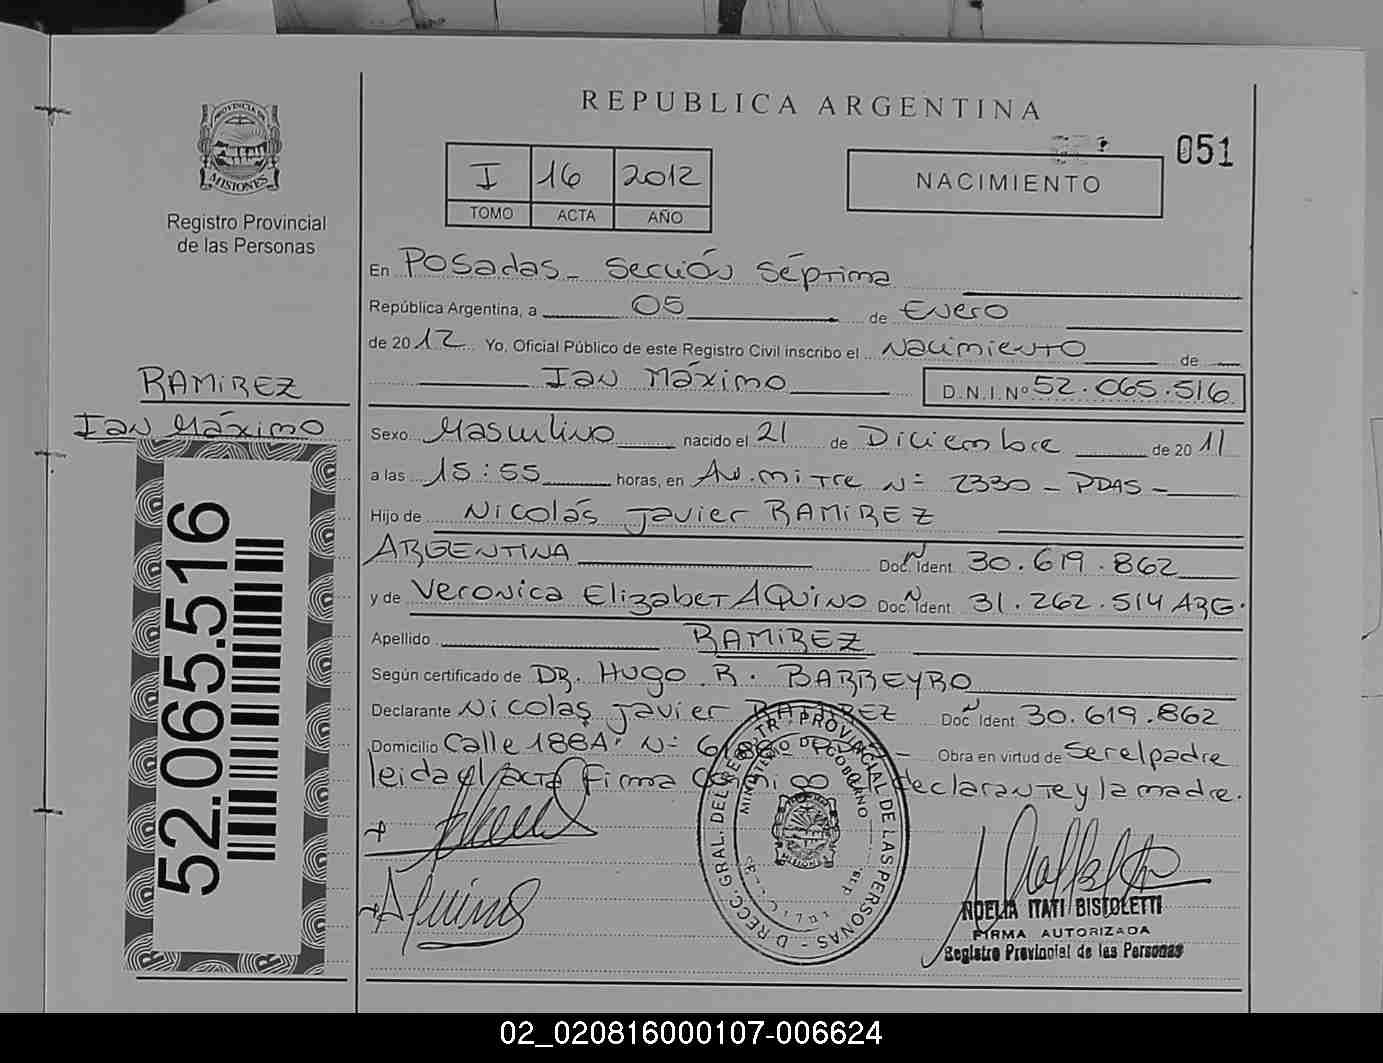 REPUBLICA ARGENTINA
051
PROVINCIA DE MISIONES
Registro Provincial
de las Personas
I 16 2012
TOMO ACTA AÑO
NACIMIENTO
En Posadas - Sección Séptima
República Argentina, a 05 de Enero
de 2012 Yo, Oficial Público de este Registro Civil inscribo el Nacimiento de
Ian Máximo D.N.I. Nº 52.065.516
RAMIREZ
Ian Máximo
52.065.516
Sexo Masculino nacido el 21 de Diciembre de 2011
a las 15:55 horas, en Av. Mitre Nº 2330 - PDAS -
Hijo de Nicolás Javier RAMIREZ
ARGENTINA Doc. Ident. 30.619.862
y de Veronica Elizabet AQuino Doc. Ident. 31.262.514 ARG.
Apellido RAMIREZ
Según certificado de DR. Hugo R. BARREYRO
Declarante Nicolas Javier RAMIREZ Doc. Ident. 30.619.862
Domicilio Calle 188A Nº Obra en virtud de Ser el padre
leida el acta firma declarante y la madre.
DIRECC. GRAL. DEL REG. PROVINCIAL DE LAS PERSONAS
MINISTERIO DE GOBIERNO
MISIONES
Aquino
NOELIA ITATI BISTOLETTI
FIRMA AUTORIZADA
Registro Provincial de las Personas
02_020816000107-006624